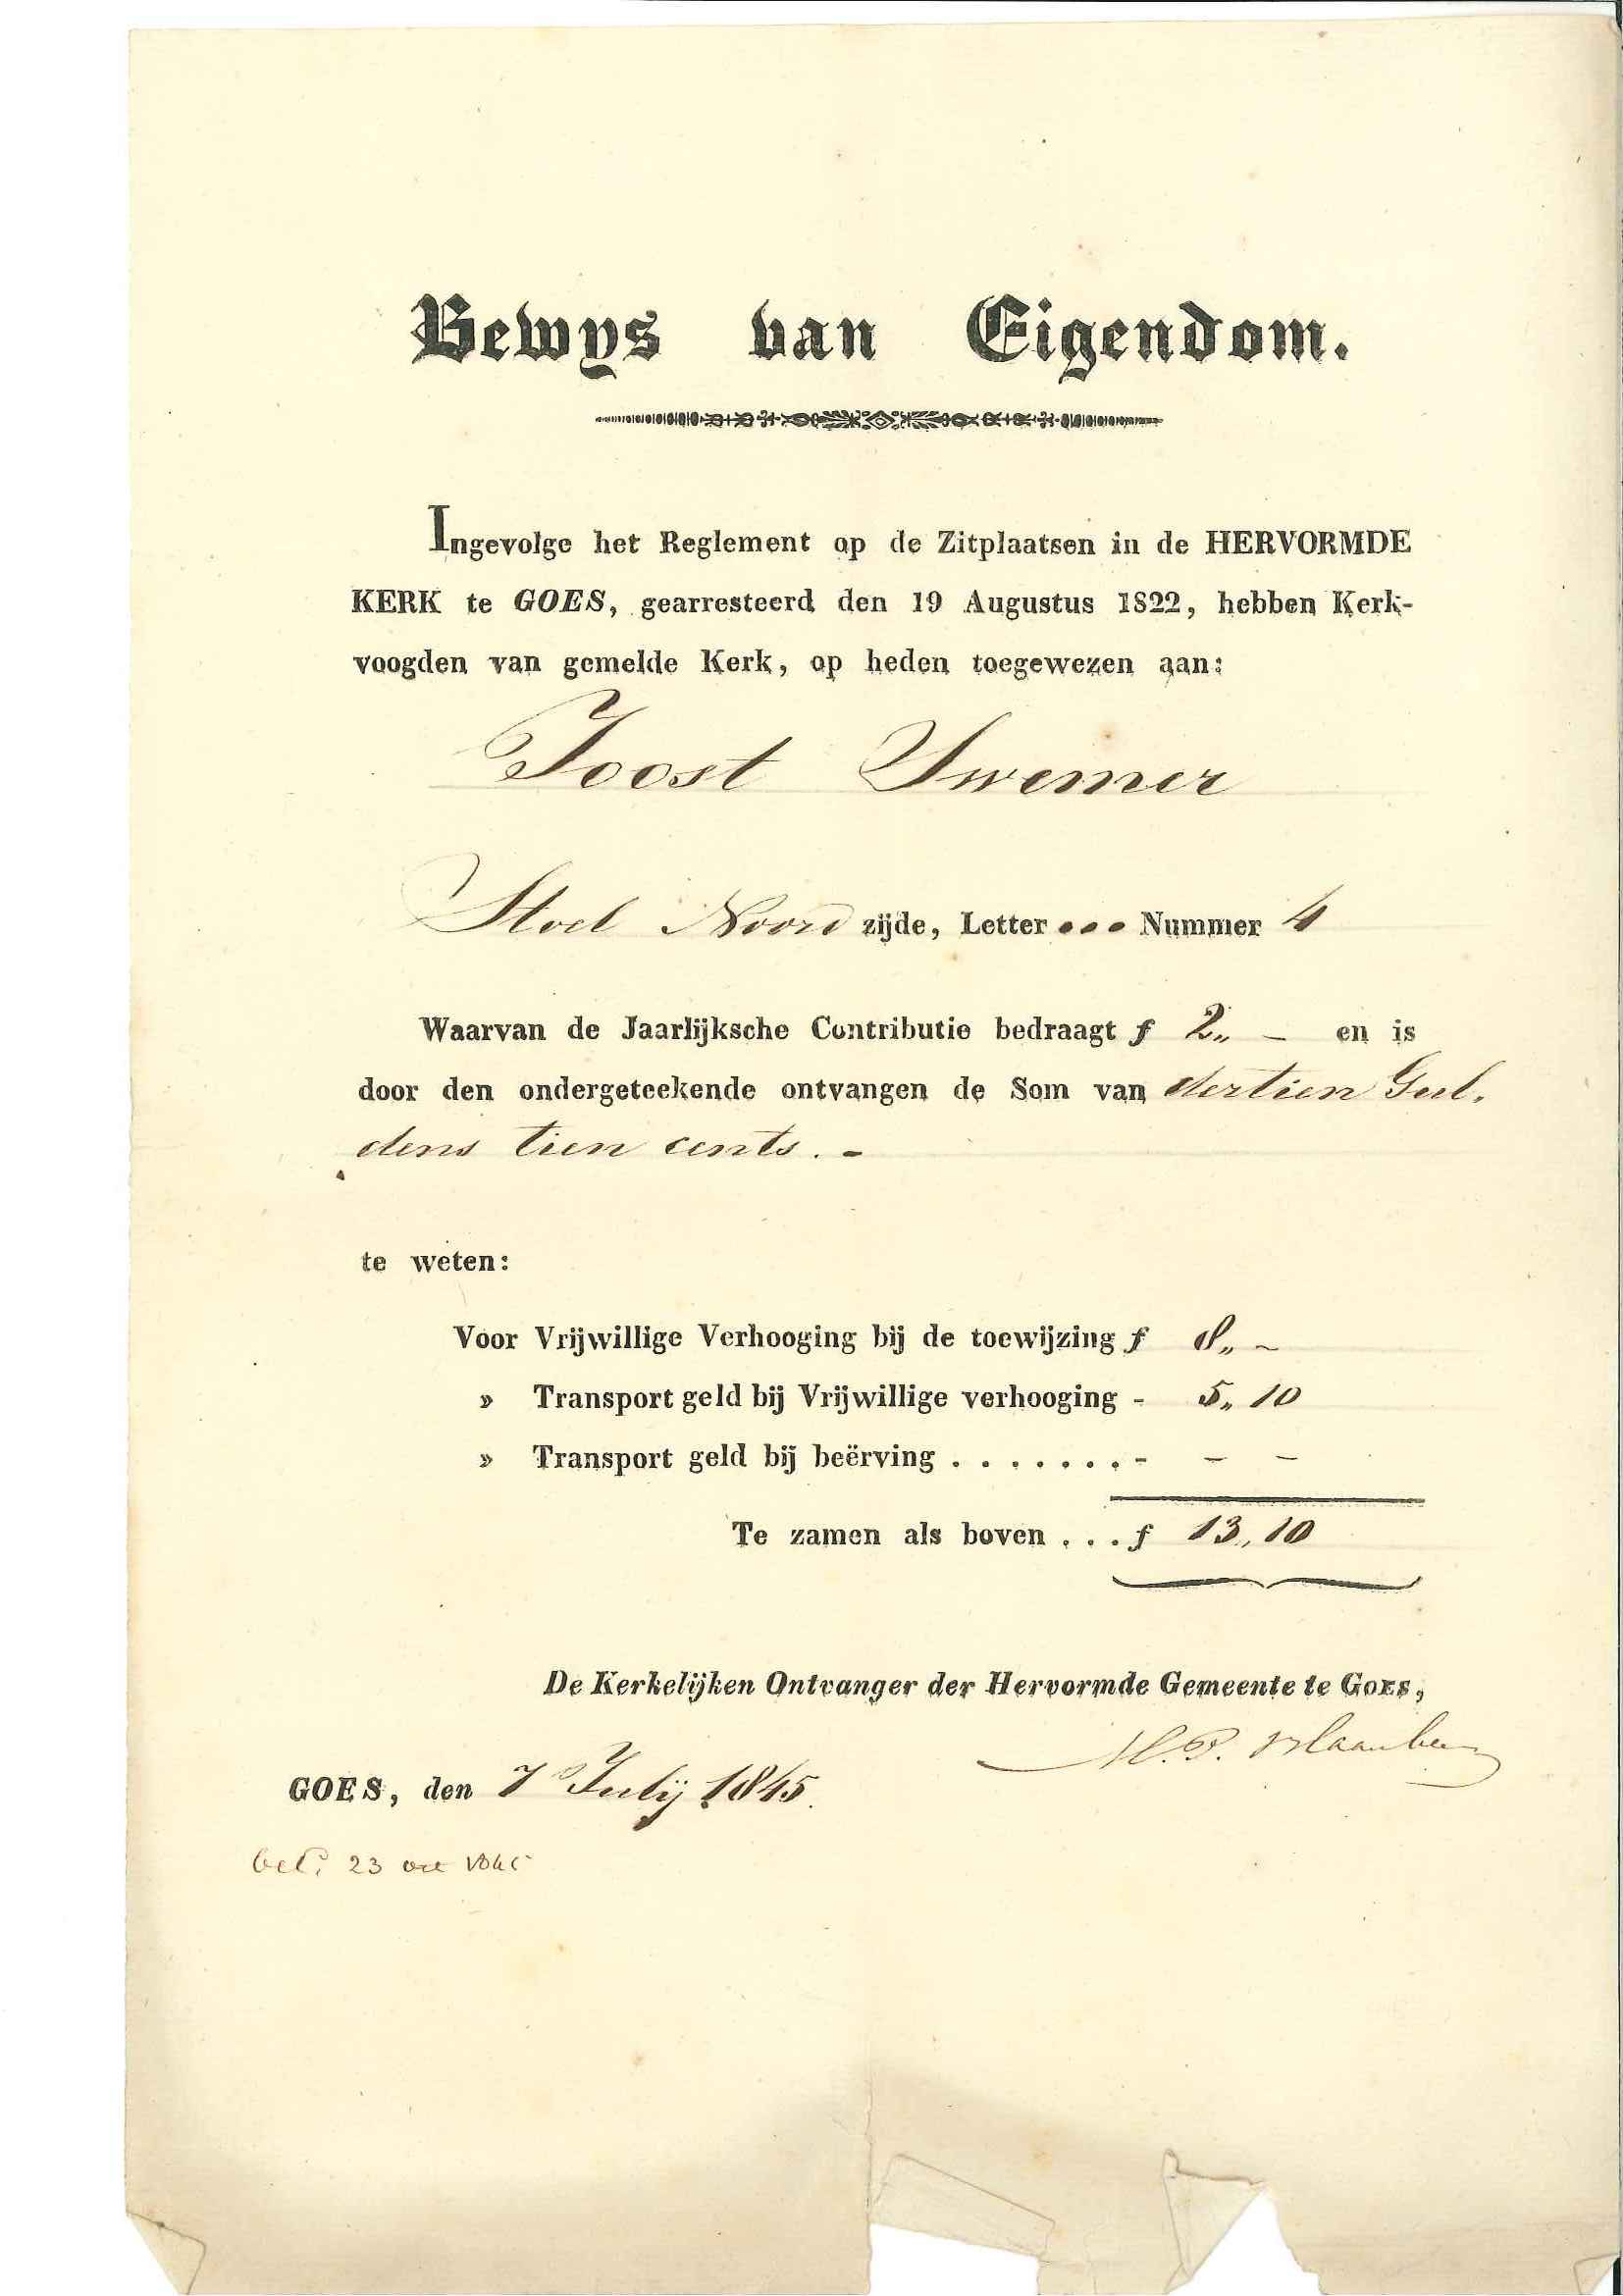 Bewys van Eigendom.
Ingevolge het Reglement op de Zitplaatsen in de HERVORMDE
KERK te GOES, gearresteerd den 19 Augustus 1822, hebben Kerk-
voogden van gemelde Kerk, op heden toegewezen aan:
Joost Swemer
Stoel Noord zijde, Letter ... Nummer 4
Waarvan de Jaarlijksche Contributie bedraagt f 2,, - en is
door den ondergeteekende ontvangen de Som van dertien Gul-
dens tien cents. -
te weten:
Voor Vrijwillige Verhooging bij de toewijzing f 8,, ~
» Transport geld bij Vrijwillige verhooging - 5,, 10
» Transport geld bij beërving . . . . . . . - - -
Te zamen als boven . . . f 13,, 10
De Kerkelijken Ontvanger der Hervormde Gemeente te GOES,
GOES, den 7 Julij 1845.
23